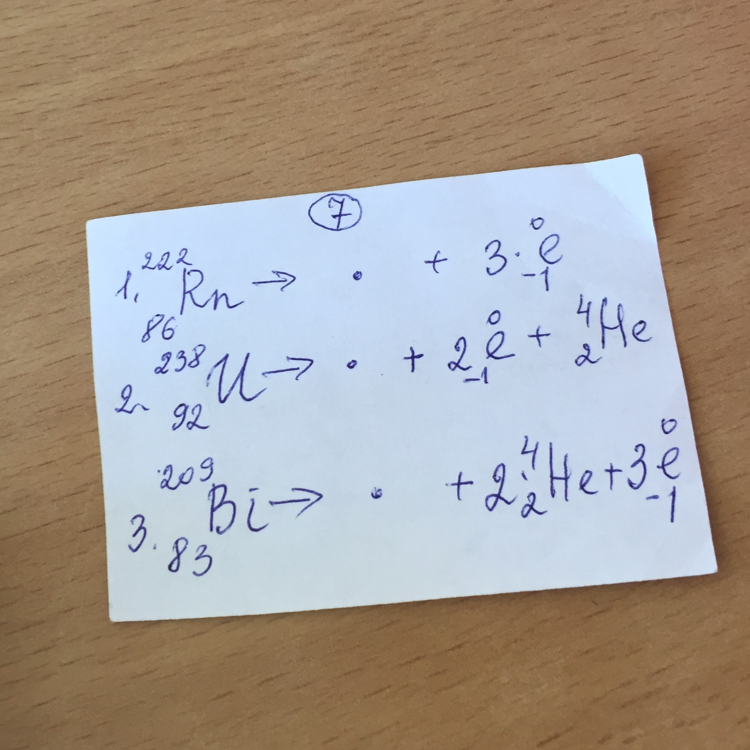 7
1. ²²²₈₆Rn → · + 3·⁰₋₁e
2. ²³⁸₉₂U → · + 2⁰₋₁e + ⁴₂He
3. ²⁰⁹₈₃Bi → · + 2·⁴₂He + 3⁰₋₁e